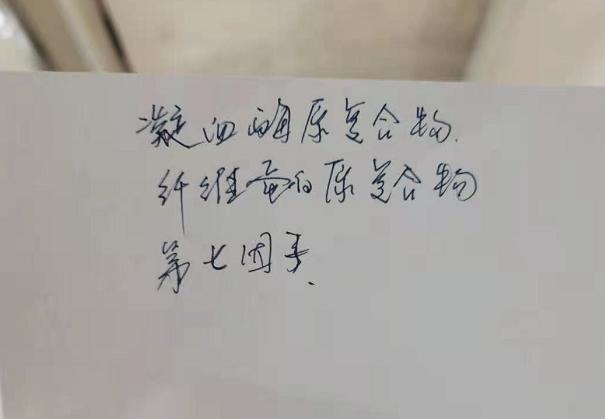 凝血酶原复合物.
纤维蛋白原复合物
第七因子.